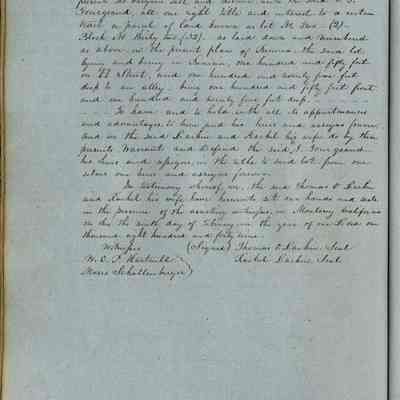 presents do bargain sell and release unto the said J.
Fourgeaud, all our right title and interest to a certain
tract or parcel of land known as lot No Two (2)
Block No thirty two (32). as laid down and numbered
as above in the present plan of Benicia the said lot
lying and being in Benicia, one hundred and fifty feet
on Street, and one hundred and seventy five feet
deep to an alley, being one hundred and fifty feet front
and one hundred and seventy five feet deep.
To have and to hold with all its appurtenances
and advantages to him and his heirs and assigns forever
and we the said Larkin and Rachel his wife do by these
presents Warrant and Defend the said J. Fourgeaud
his heirs and assigns, in the title to said lot from our
selves our heirs and assigns forever.
In testimony whereof, we, the said Thomas O Larkin
and Rachel his wife, have hereunto set our hands and seals
in the presence of the witnesses, in Monterey California
on this the ninth day of February, in the year of our Lord one
thousand eight hundred and forty nine.
Witnesses (Signed) Thomas O Larkin Seal
W. E. P. Hartnell Rachel Larkin Seal
Moses Schallenberger